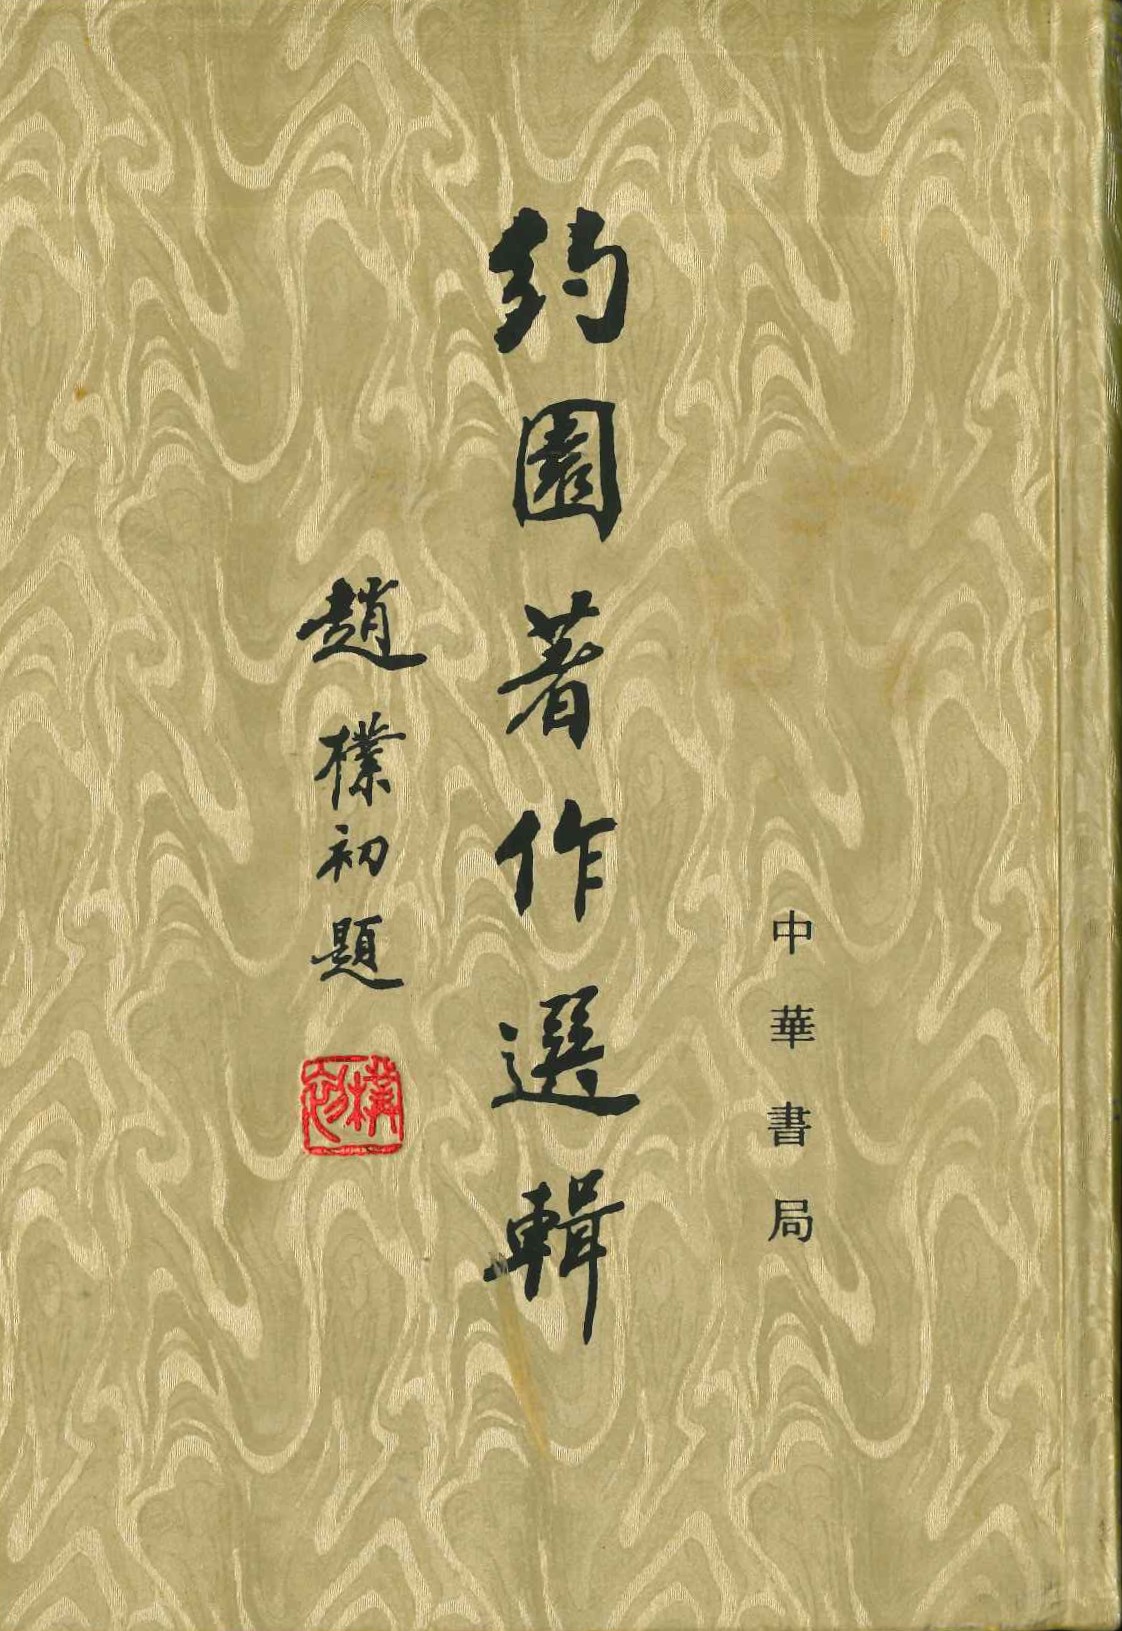 中華書局
約園著作選輯
趙樸初題
樸初